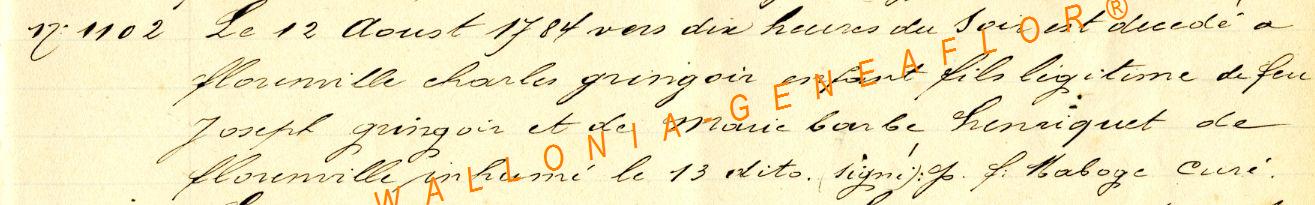 N° 1102 Le 12 Aoust 1784 vers dix heures du Soir est decedé a
florenville charles gringoir enfant fils legitime de feu
Joseph gringoir et de Marie barbe henriquet de
florenville inhumé le 13 dito. (signé): J. f. Maboge Curé.
WALLONIA-GENEAFLOR®